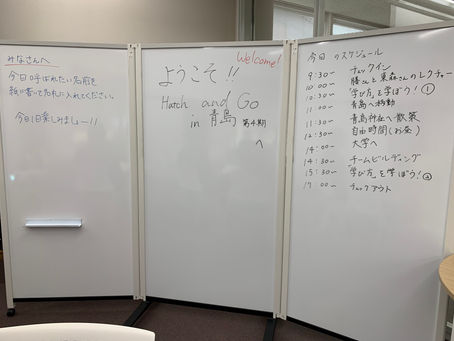 みなさんへ
今日呼ばれたい名前を
紙に書って名札に入れてください。
今日1日楽しみましー!!
Welcome!
ようこそ!!
Hatch and Go
in 青島 第4期
へ
今日のスケジュール
9:30〜 チェックイン
10:00〜 勝さんと東森さんのレクチャー
10:30〜 「学び方」を学ぼう!①
11:00〜 青島へ移動
11:30〜 青島神社へ散策
12:30〜 自由時間(お昼)
14:00〜 大学へ
14:30〜 チームビルディング
15:30〜 「学び方」を学ぼう!②
17:00〜 チェックアウト